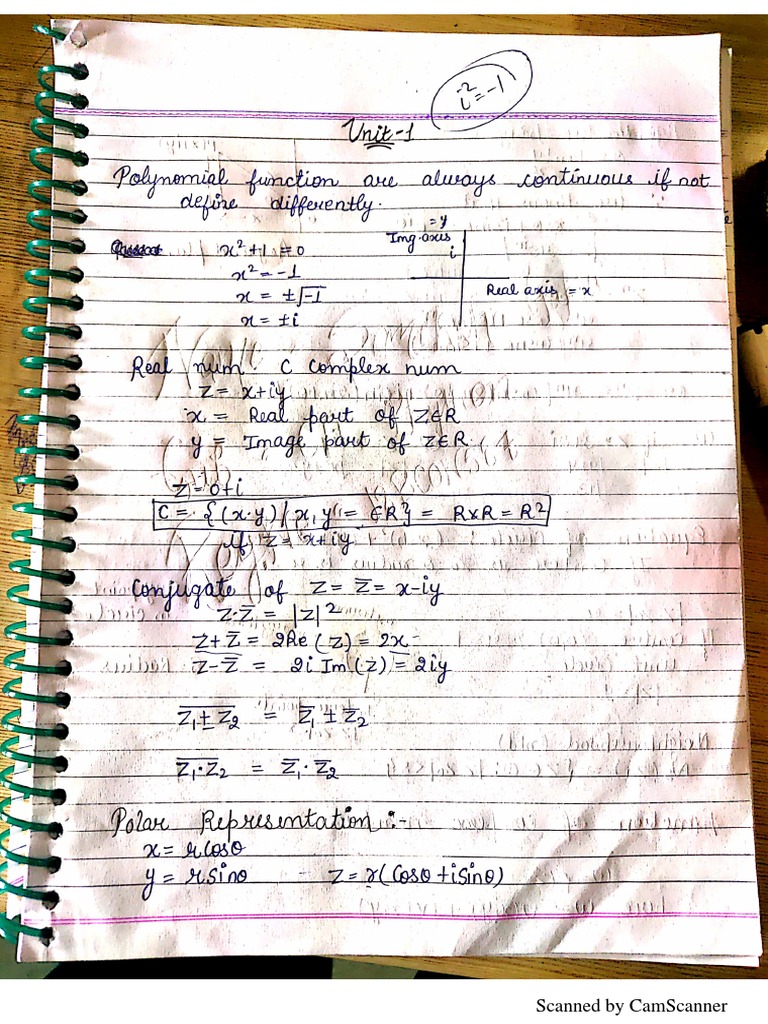 i² = -1
Unit-1
Polynomial function are always continuous if not
define differently.
x² + 1 = 0
x² = -1
x = ±√-1
x = ±i
= y
Img. axis
i
Real axis = x
Real num. C complex num
z = x+iy
x = Real part of Z∈R
y = Image part of Z∈R
z = 0+i
C = {(x·y) / x, y = ∈R²} = R×R = R²
if z = x+iy
Conjugate of Z = z̅ = x-iy
z·z̅ = |z|²
z+z̅ = 2Re(z) = 2x
z-z̅ = 2i Im(z) = 2iy
\overline{z₁ ± z₂} = z̅₁ ± z̅₂
\overline{z₁·z₂} = z̅₁·z̅₂
Polar Representation :-
x = r cosθ
y = r sinθ z = r(cosθ + isinθ)
Scanned by CamScanner